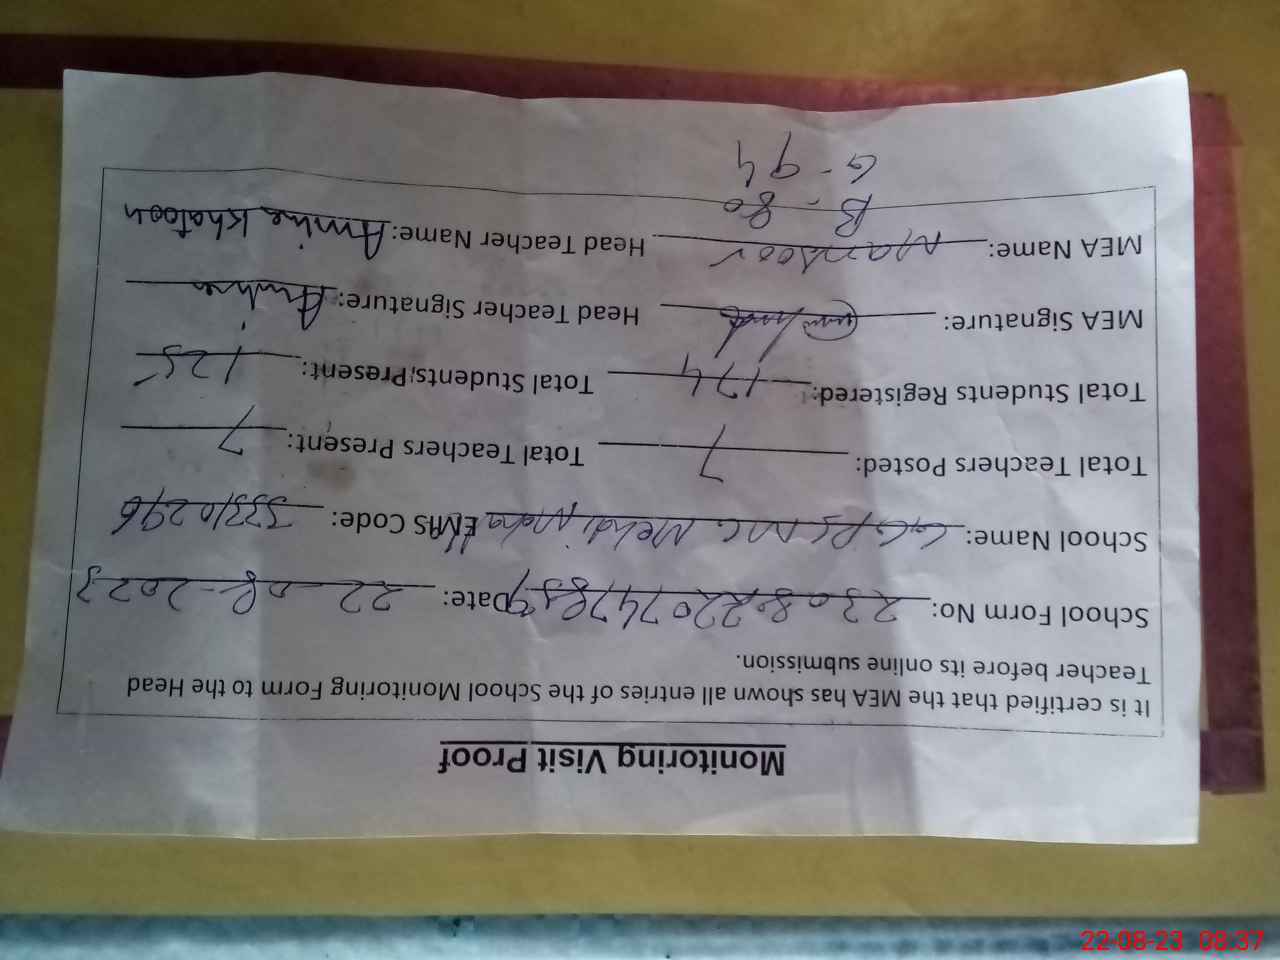 Monitoring Visit Proof
It is certified that the MEA has shown all entries of the School Monitoring Form to the Head
Teacher before its online submission.
School Form No: 2308220747859 Date: 22-08-2023
School Name: GGPS MC Mehdi Moha EMIS Code: 33310296
Total Teachers Posted: 7 Total Teachers Present: 7
Total Students Registered: 174 Total Students Present: 125
MEA Signature: Head Teacher Signature: Amina
MEA Name: Mansoor Head Teacher Name: Amina Khatoon
B - 80
G - 94
22-08-23 08:37